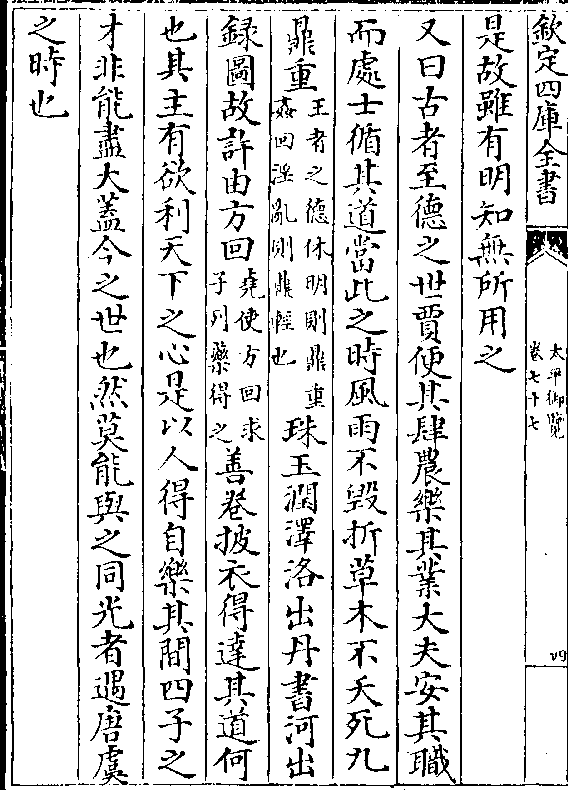 欽定四庫全書
太平御覽
卷七十七
四
是故雖有明知無所用之
又曰古者至德之世賈便其肆農樂其業大夫安其職
而處士循其道當此之時風雨不毀折草木不夭死九
鼎重王者之德休明則鼎重姦回淫亂則鼎輕也珠玉潤澤洛出丹書河出
録圖故許由方回堯使方回求子列藥得之善卷披衣得達其道何
也其主有欲利天下之心是以人得自樂其間四子之
才非能盡大蓋今之世也然莫能與之同光者遇唐虞
之時也